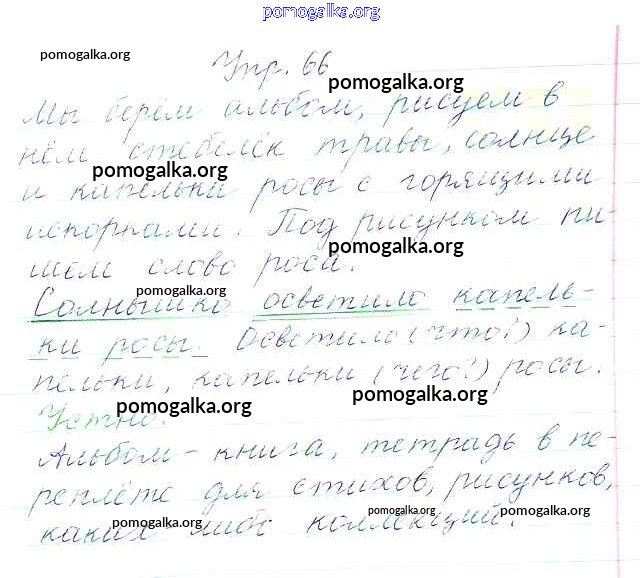 pomogalka.org
pomogalka.org
Упр. 66
pomogalka.org
Мы берём альбом, рисуем в
нём стебелёк травы, солнце
pomogalka.org
и капельки росы с горящими
искорками. Под рисунком пи-
pomogalka.org
шем слово роса.
pomogalka.org
Солнышко осветило капель-
ки росы. Осветило (что?) ка-
пельки, капельки (чего?) росы.
pomogalka.org
pomogalka.org
Устно.
Альбом - книга, тетрадь в пе-
реплёте для стихов, рисунков,
pomogalka.org
pomogalka.org
pomogalka.org
каких либо коллекций.